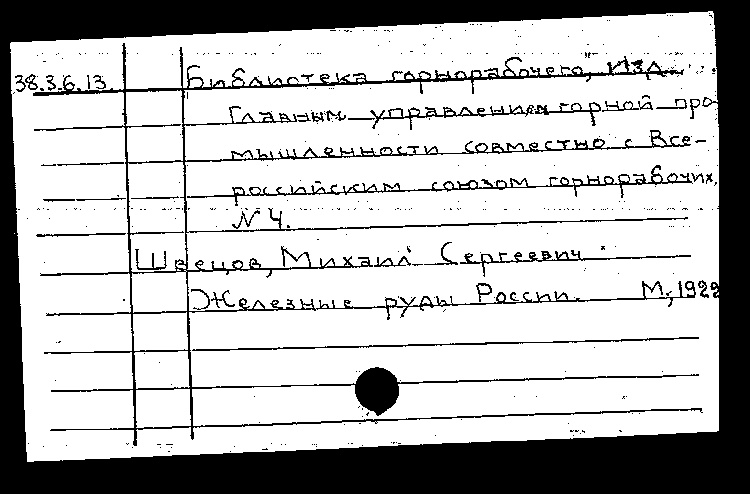 38.3.6.13. Библиотека горнорабочего", Изд.
Главным управлением горной про-
мышленности совместно с Все-
российским союзом горнорабочих,
N 4.
Швецов, Михаил Сергеевич
Железные руды России. М., 1922